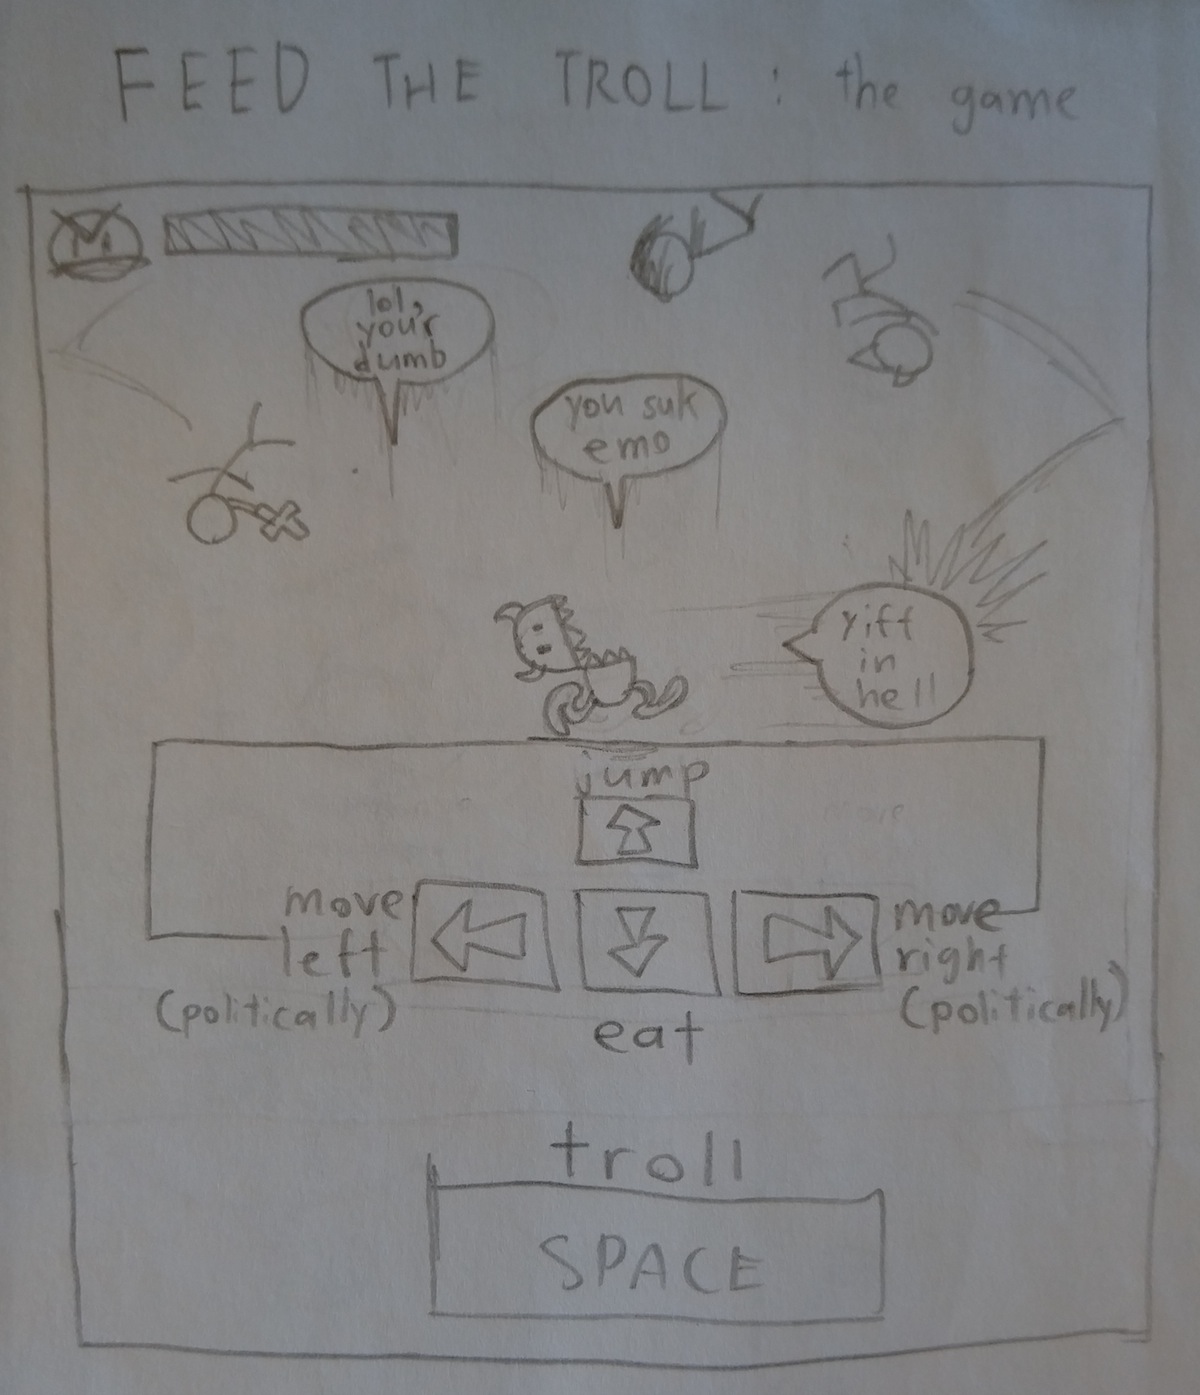 FEED THE TROLL: the game
M
lol,
you'r
dumb
you suk
emo
yiff
in
hell
jump
move
left
(politically)
move
right
(politically)
eat
troll
SPACE